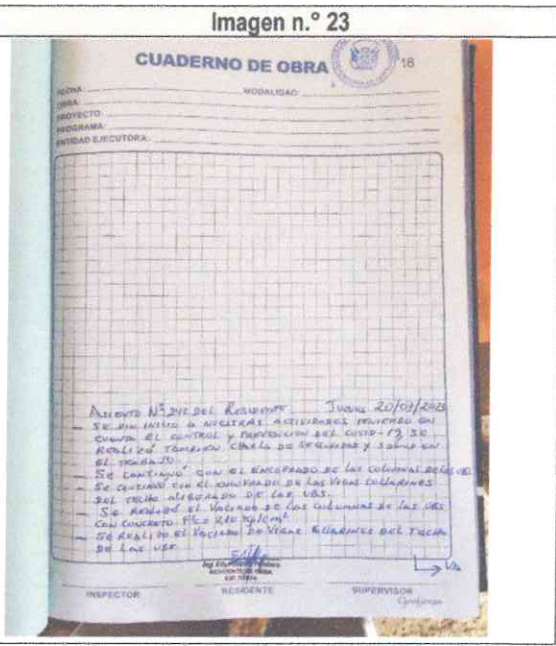 Imagen n.º 23
CUADERNO DE OBRA
18
FECHA
MODALIDAD
OBRA
PROYECTO
PROGRAMA
ENTIDAD EJECUTORA
Asiento Nº 242 del Residente Jueves 20/04/2023
- SE DIO INICIO A NUESTRAS ACTIVIDADES TENIENDO EN
CUENTA EL CONTROL Y PREVENCION DEL COVID-19, SE
REALIZÓ TAMBIEN CHARLA DE SEGURIDAD Y SALUD EN
EL TRABAJO.
- SE CONTINUÓ CON EL ENCOFRADO DE LAS COLUMNAS DE LAS UBS
- SE CONTINUÓ CON EL ENCOFRADO DE LAS VIGAS COLLARINES
DEL TECHO ALIGERADO DE LAS UBS.
- SE REALIZÓ EL VACIADO DE LAS COLUMNAS DE LAS UBS
CON CONCRETO F'c= 210 Kg/cm²
- SE REALIZO EL VACIADO DE VIGAS COLLARINES DEL TECHO
DE LAS UBS
RESIDENTE DE OBRA
INSPECTOR
RESIDENTE
SUPERVISOR